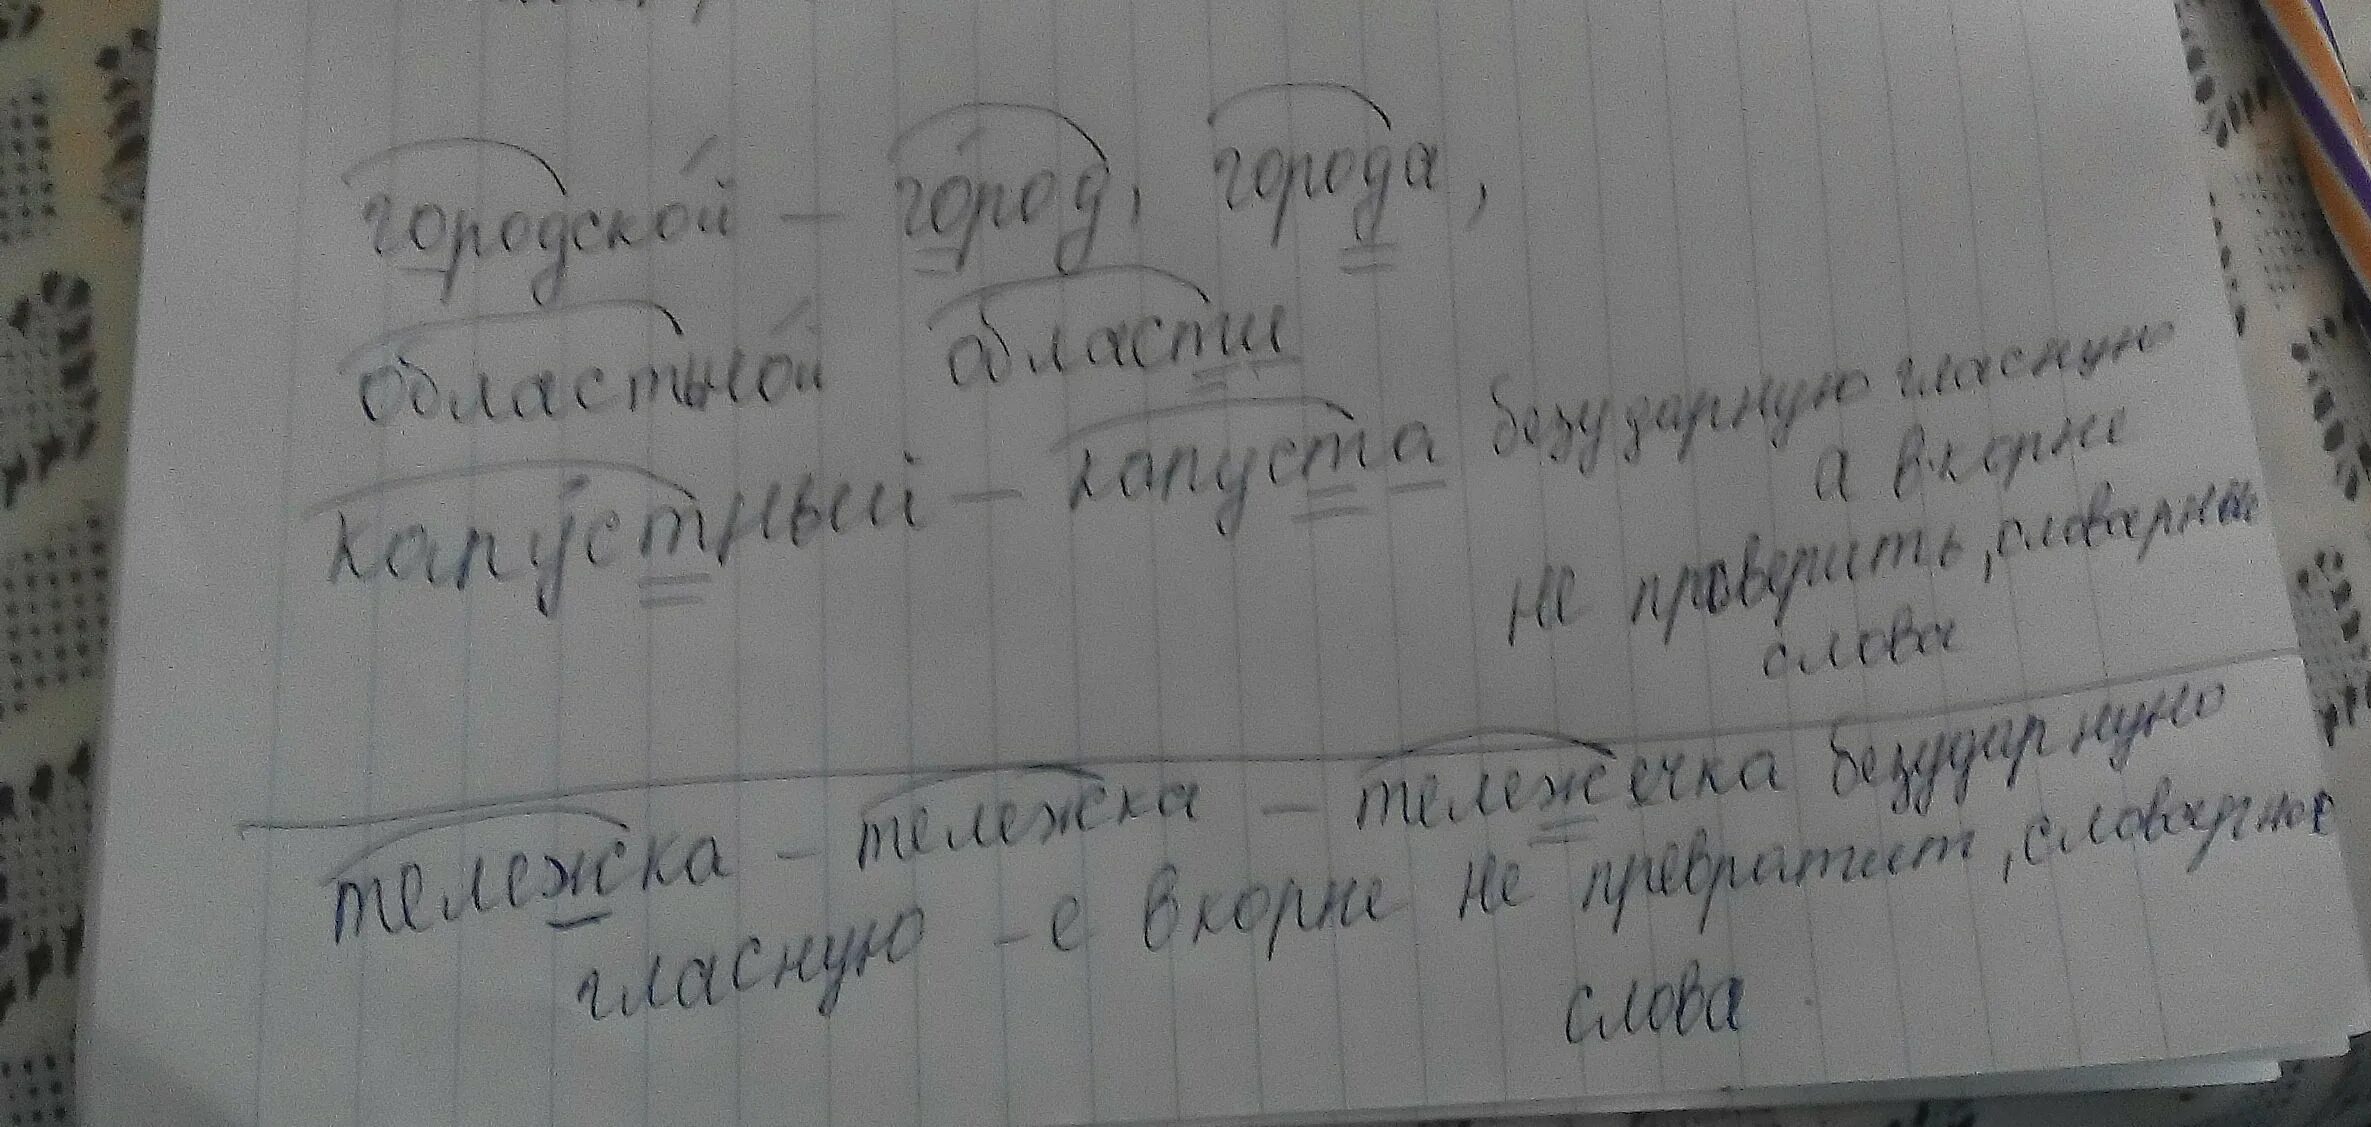 городско́й – го́род, города,
областно́й области
капу́стный – капуста безударную гласную
а в корне
не проверить, словарные
слова
тележка – тележка – тележечка безударную
гласную – е в корне не превратит, словарное
слова